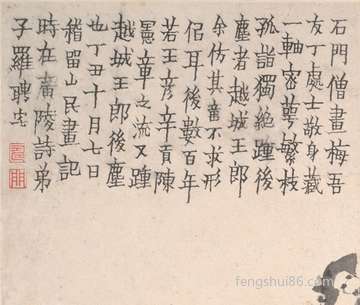 石門僧畫梅吾
友丁處士敬身藏
一軸密蕚繁枝
孤詣獨絶踵後
塵者越城王郎
余仿其意不求形
佀耳後數百年
若王彦辛貢陳
憲章之流又踵
越城王郎後塵
也丁丑十月七日
稽留山民畫記
時在廣陵詩弟
子羅聘宅
fengshui86.com